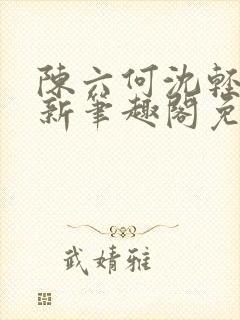 陳六何沈輕
新筆趣閣免
武婧雅